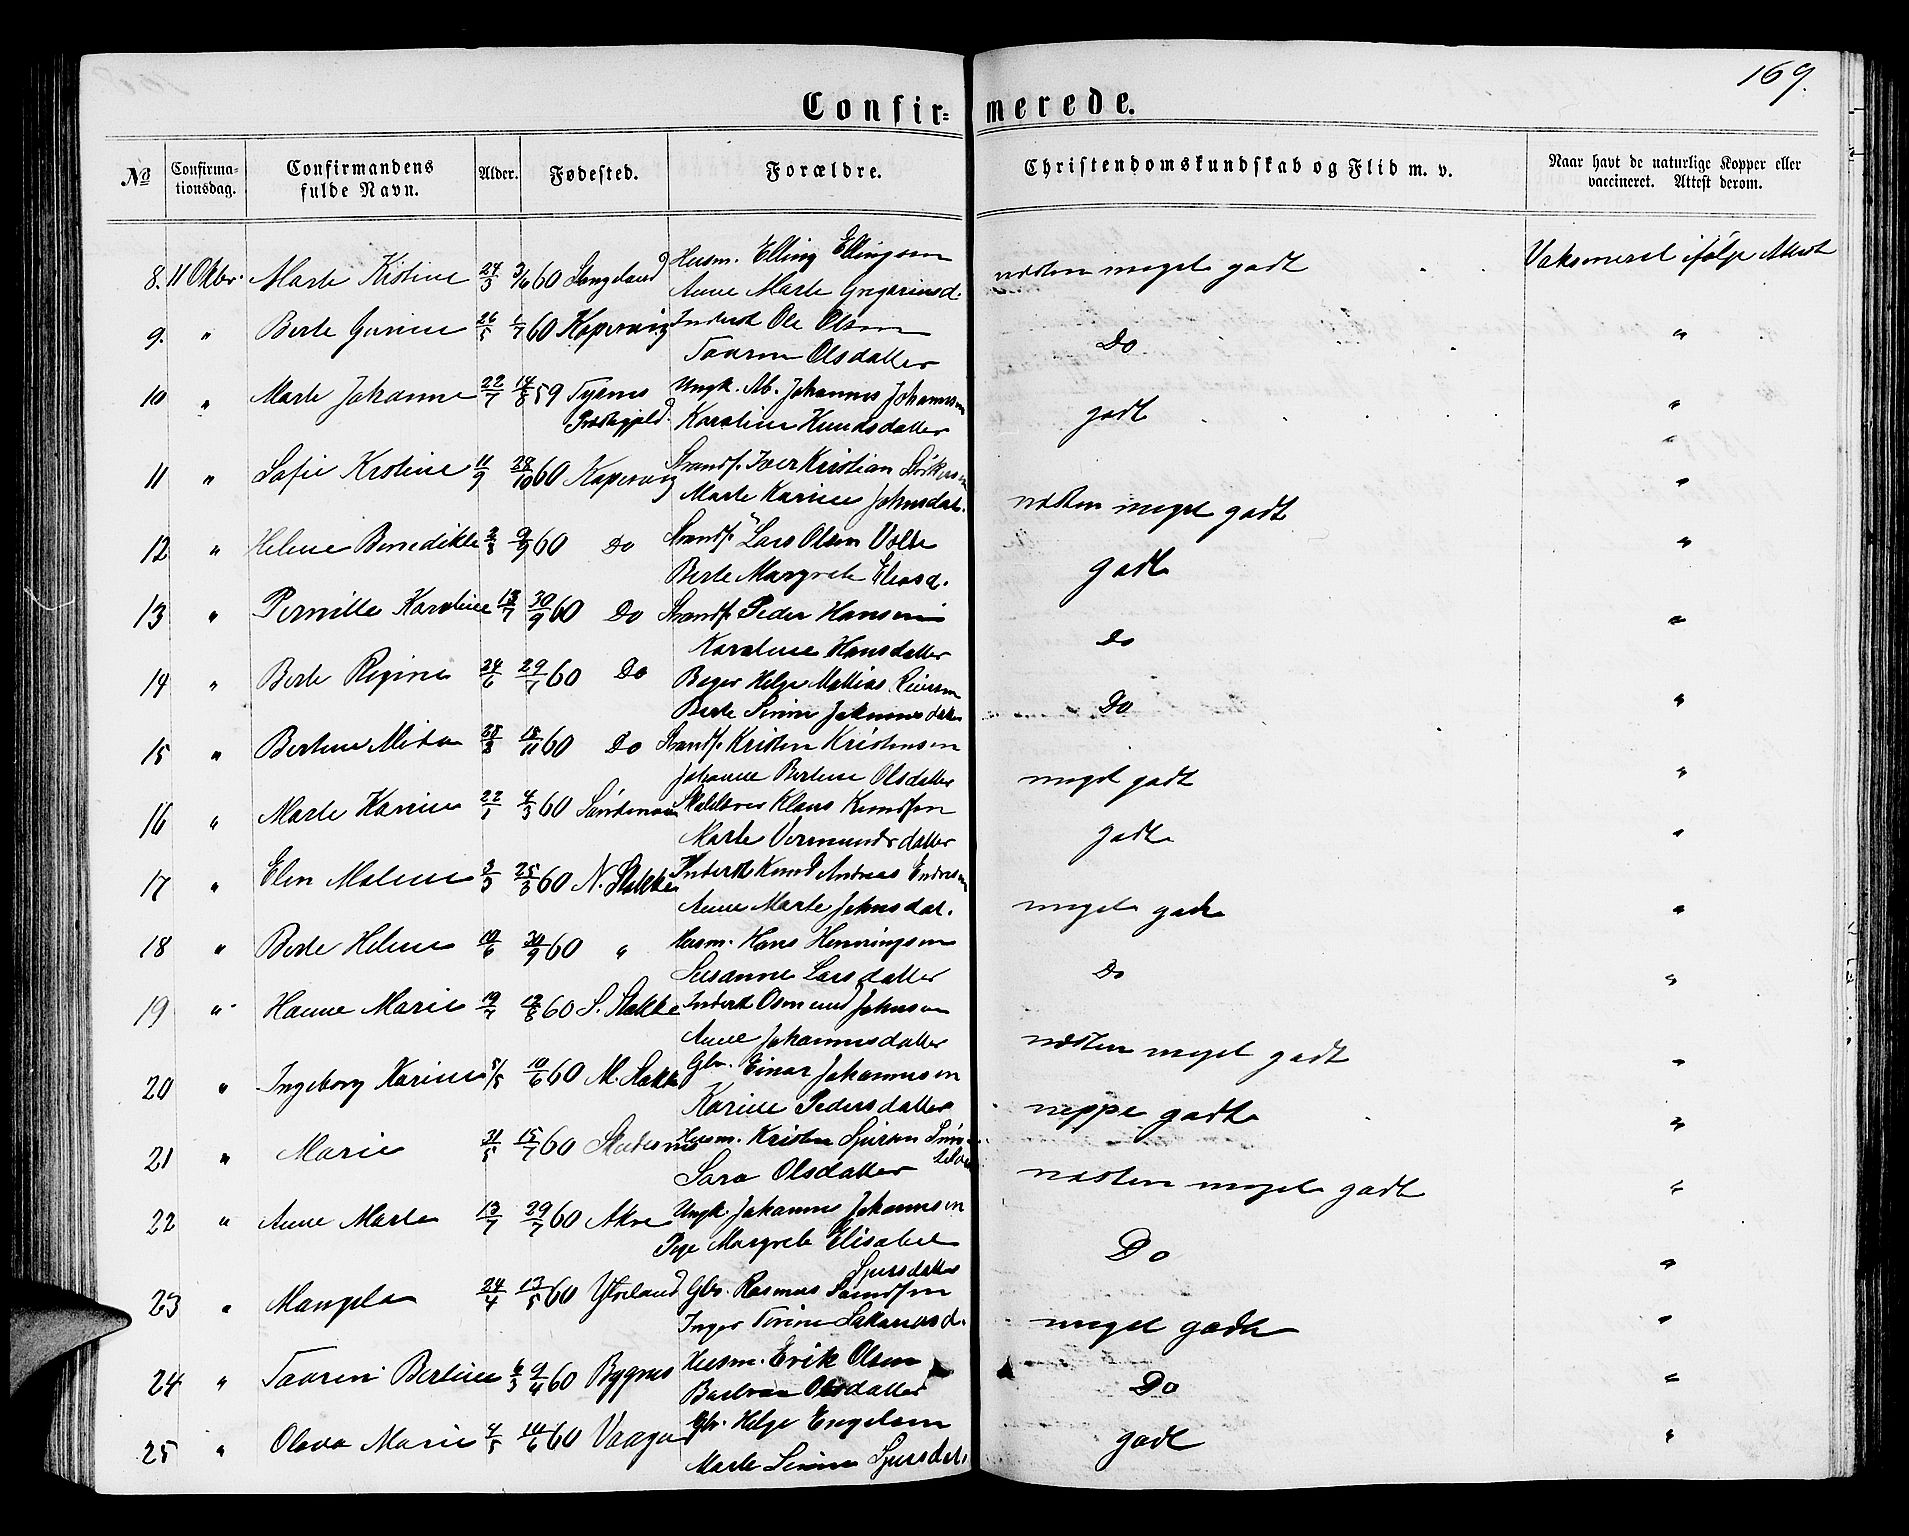 169.
Confir= merede.
No Confirma= tionsdag. Confirmandens fulde Navn. Alder. Fødested. Forældre. Christendomskundskab og Flid m. v. Naar havt de naturlige Kopper eller vaccineret. Attest derom.
8. 11 Oktbr. Marte Kistine 24/3 3/6 60 Langeland Husm. Elling Ellingsen næsten meget godt Vaksineret ifølge Attest
Anne Marte Gregoriusd.
9. " Berte Gurine 26/5 1/7 60 Kopervig Inderst Ole Olsen Do "
Taaren Olsdatter
10 " Marte Johanne 22/7 14/8 59 Tysnes Ungk. Ab. Johannes Johannesen godt "
Præstegjeld Karoline Knudsdatter "
11 " Sofie Kristine 11/9 28/10 60 Kopervig Strandf. Iver Kristian
Marte Karine Johnsdat. næsten meget godt "
12 " Helene Benedikte 2/3 9/9 60 Do Strandf. Lars Olsen Valle godt "
Berte Margrete Eliasd.
13 " Pernille Karoline 13/7 30/9 60 Do Strandf. Peder Hansen Do "
Karoline Hansdatter
14 " Berte Regine 24/6 29/7 60 Do Bager Helge Mathias Do "
Berte Serine Johannesdatter
15 " Bertine Meta 25/3 18/11 60 Do Strandf. Kristen Kristensen meget godt "
Johanne Bertine Olsdatter
16 " Marte Karine 22/1 4/3 60 Klaus Knudsen godt "
Marte Vermundsdatter
17 " Elen Malene 3/3 25/3 60 N. Stokke Inderst Knud Andreas Endresen meget godt "
Anne Marte Johnsdat.
18 " Berte Helene 10/6 30/9 60 " Husm. Hans Henningsen Do "
Susanne Larsdatter
19 " Hanne Marie 19/7 12/8 60 S. Stokke Inderst Osmund Johnsen næsten meget godt "
Anne Johannesdatter
20 " Ingeborg Karine 5/5 10/6 60 M. Stokke Gbr. Einar Johannesen neppe godt "
Karine Pedersdatter
21 " Marie 31/5 15/7 60 Husm. Kristen Sjursen næsten meget godt "
Sara Olsdatter
22 " Anne Marta 13/7 29/7 60 Akre Ungk. Johannes Johannesen Do "
Pige Margrete Elisabet
Sjursdatter
23 " Mangela 24/4 13/5 60 Ytreland Gbr. Rasmus meget godt "
Inger Torine
24 " Taaren Bertine 6/3 9/4 60 Bygnes Husm. Erik Olsen Do "
Barbra Olsdatter
25 " Olava Marie 4/5 10/6 60 Vaage Gbr. Helge Engelsen godt "
Marte Serine Sjursdat.